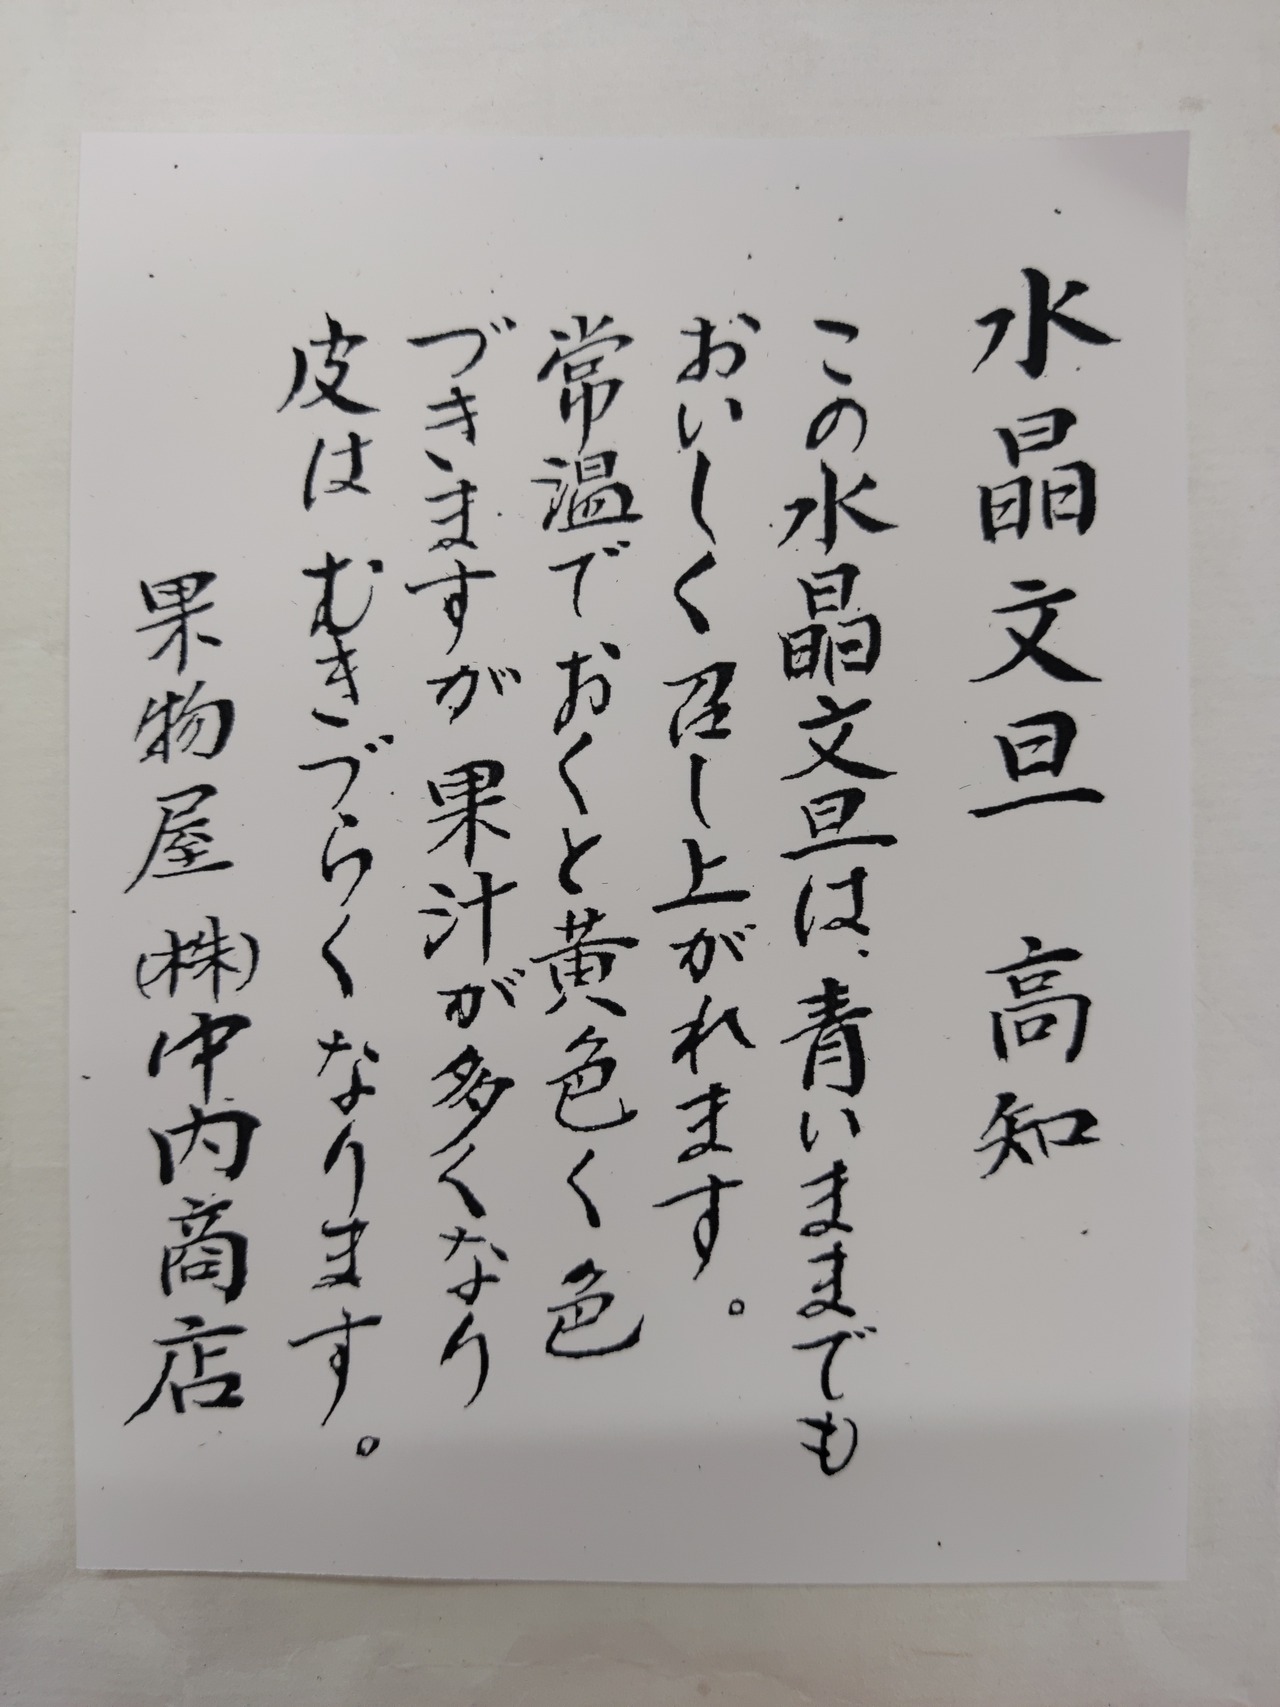 水晶文旦　高知
この水晶文旦は、青いままでも
おいしく召し上がれます。
常温でおくと黄色く色
づきますが 果汁が多くなり
皮は むきづらく なります。
果物屋 (株)中内商店